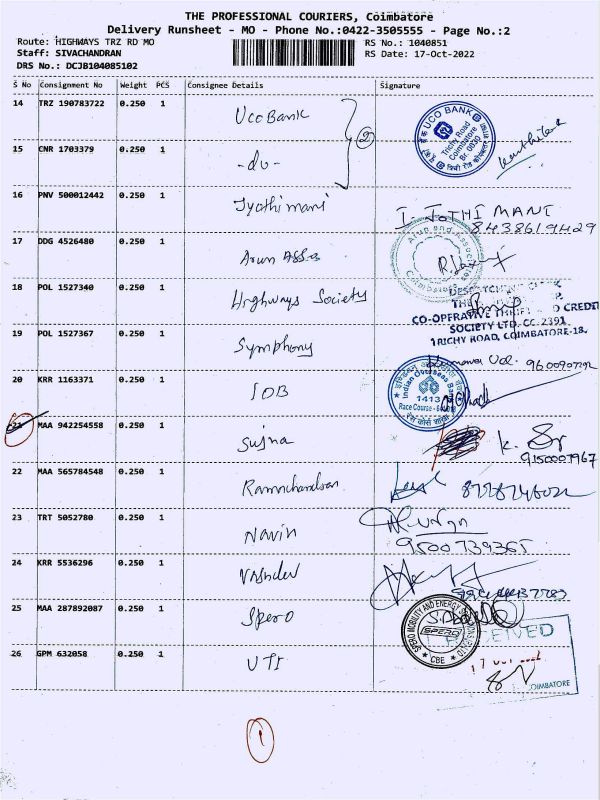 THE PROFESSIONAL COURIERS, Coimbatore
Delivery Runsheet - MO - Phone No.:0422-3505555 - Page No.:2
Route: HIGHWAYS TRZ RD MO
RS No.: 1040851
Staff: SIVACHANDRAN
RS Date: 17-Oct-2022
DRS No.: DCJB104085102
S No Consignment No Weight PCS Consignee Details Signature
14 TRZ 190783722 0.250 1 Uco Bank
UCO BANK
Trichy Road
Coimbatore
Br. 0030
15 CNR 1703379 0.250 1 -do-
2
16 PNV 500012442 0.250 1 Jyothimani I. JOTHI MANI
8438619429
17 DDG 4526480 0.250 1 Arun Asso
18 POL 1527340 0.250 1 Highways Society
DESPATCHING CLERK
CO-OPERATIVE THRIFT AND CREDIT
SOCIETY LTD. CC-2391
TRICHY ROAD, COIMBATORE-18.
19 POL 1527367 0.250 1 Symphony
9600907292
20 KRR 1163371 0.250 1 IOB
Indian Overseas Bank
1413
Race Course
21 MAA 942254558 0.250 1 Sujna
9150007967
22 MAA 565784548 0.250 1 Ramachandran
23 TRT 5052780 0.250 1 Navin
9500739365
24 KRR 5536296 0.250 1 Vasudev
25 MAA 287892087 0.250 1 Spero
SPERO MOBILITY AND ENERGY
SPERO
CBE
26 GPM 632058 0.250 1 UTI
RECEIVED
17 OCT
COIMBATORE
1